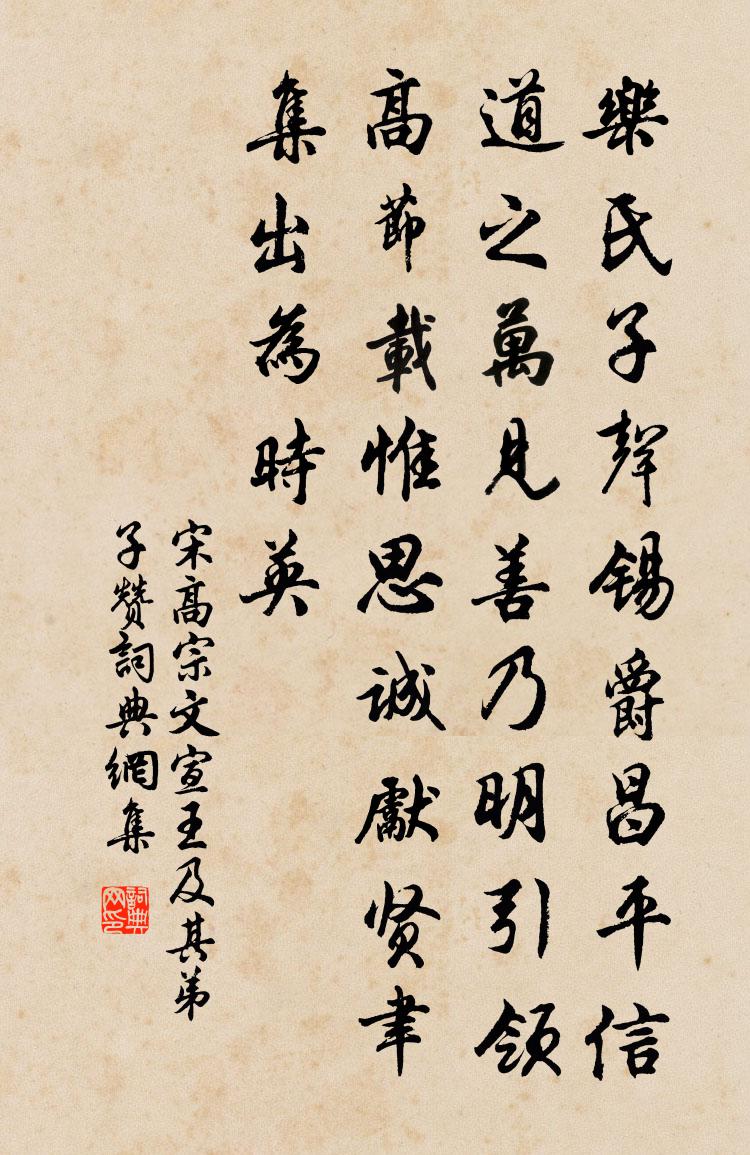 樂氏子聲錫爵昌平信
道之萬見善乃明引領
髙節載惟思誠獻贤聿
集出為時英
宋髙宗文宣王及其弟
子贊詞典網集
詞典
网印